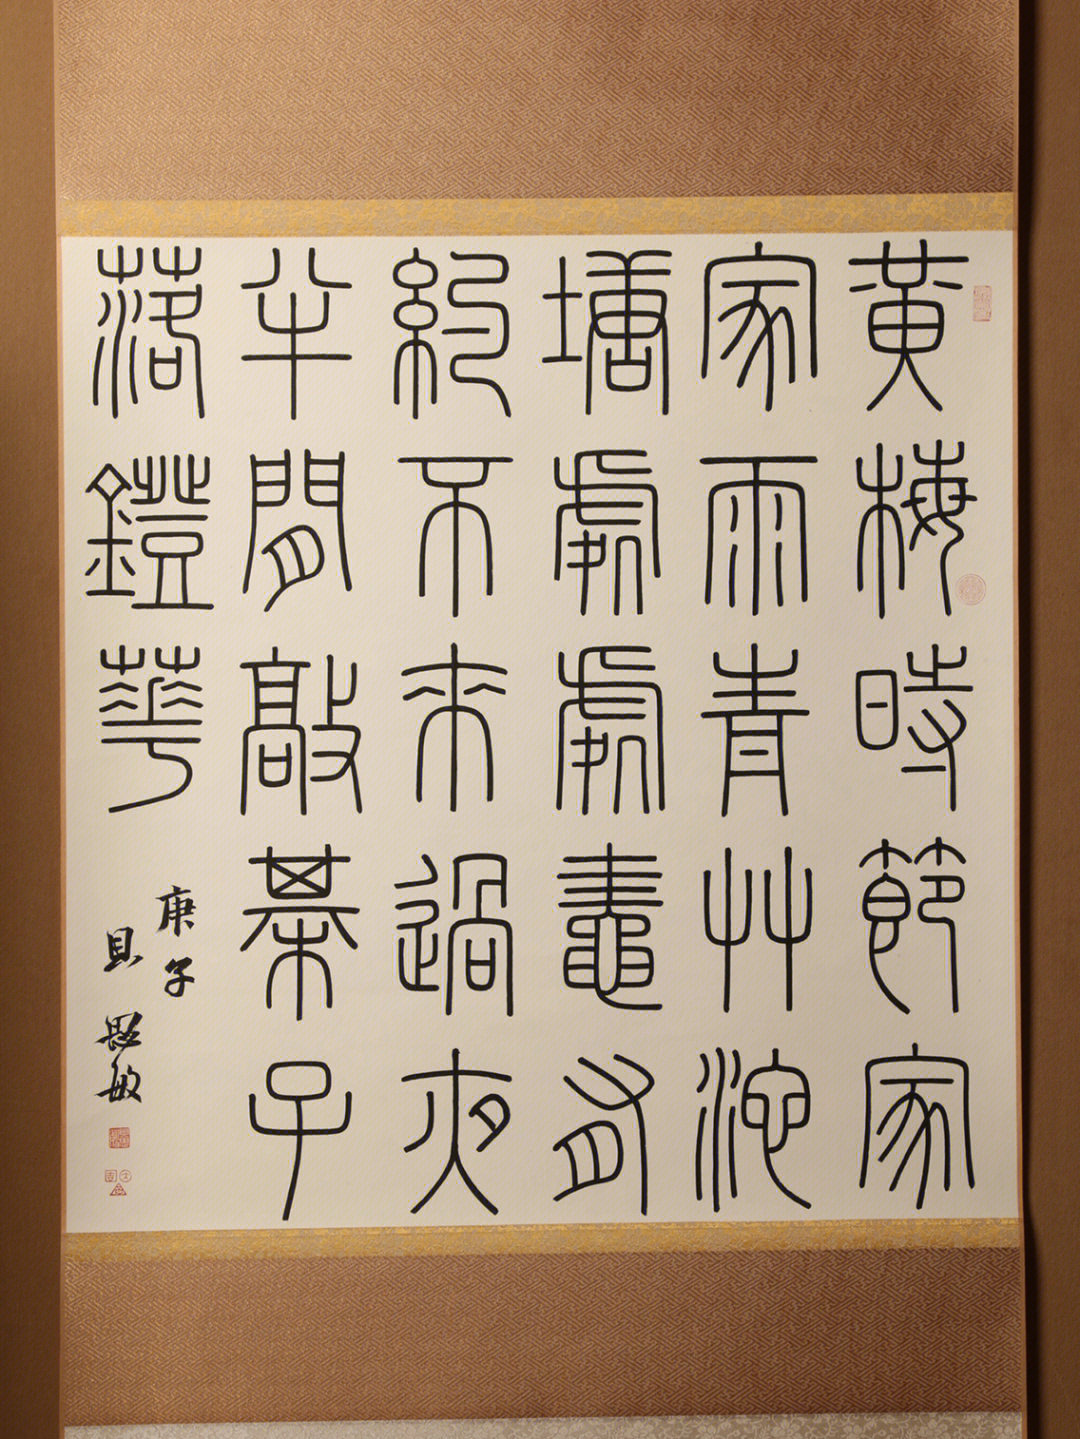 黃梅時節家
家雨青艸池
塘處處䵷有
約不來過夜
半閒敲棊子
落鐙華
庚子
貝思敏